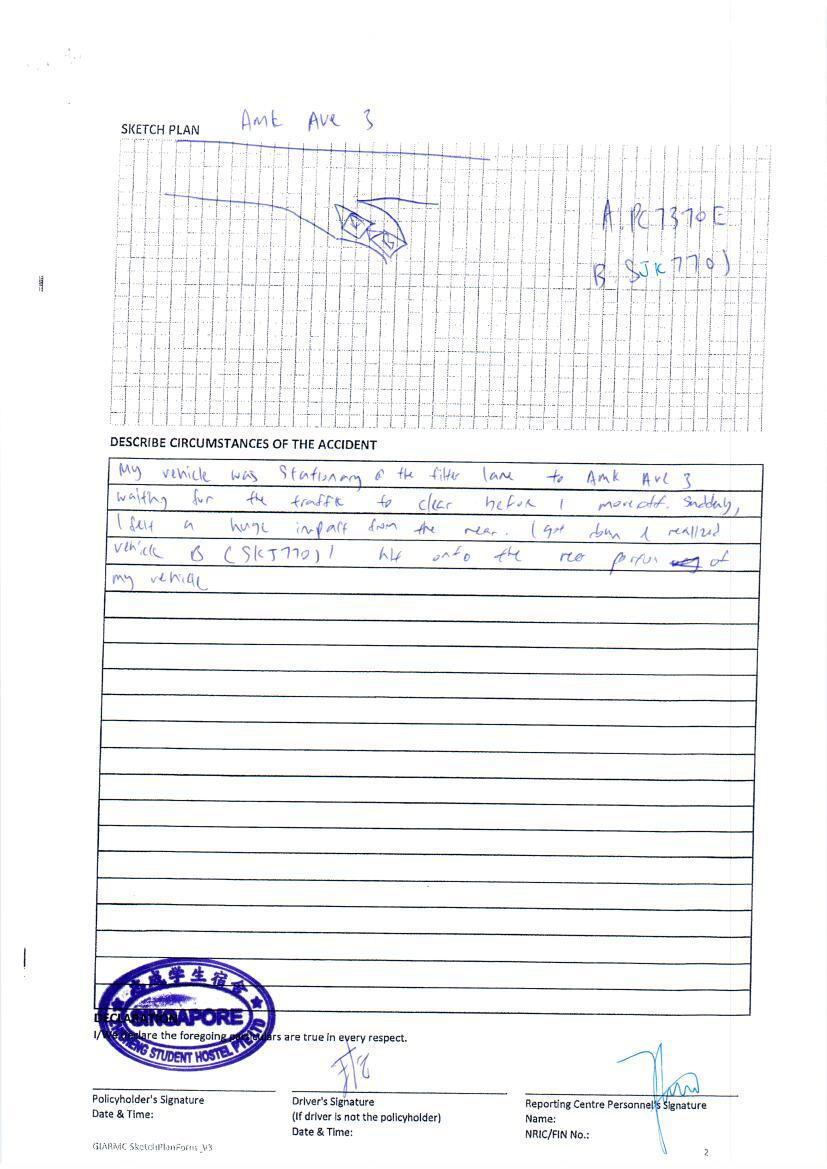 SKETCH PLAN Amk Ave 3
A: PC7370E
B: SJK770)
DESCRIBE CIRCUMSTANCES OF THE ACCIDENT
My vehicle was stationary @ the filter lane to Amk Ave 3
waiting for the traffic to clear before I move off. Suddenly,
I felt a huge impact from the rear. I got down & realized
vehicle B (SKJ770)) hit onto the rear portion of
my vehicle
学生宿舍
SINGAPORE
STUDENT HOSTEL PTE LTD
DECLARATION
I/We declare the foregoing particulars are true in every respect.
Policyholder's Signature
Date & Time:
Driver's Signature
(If driver is not the policyholder)
Date & Time:
Reporting Centre Personnel's Signature
Name:
NRIC/FIN No.:
GIARMC SketchPlanForm_V3
2